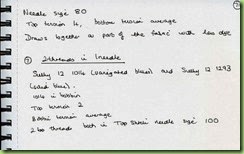 Needle size 80
Top tension 4, bottom tension average
Draws together as part of the fabric with less
② 2 threads in 1 needle
Sulky 12 1014 (variegated blues) and Sulky 12 1293
(solid blue).
1014 in bobbin
Top tension 2
Bobbin tension average
2 top threads both in Top Stitch needle size 100